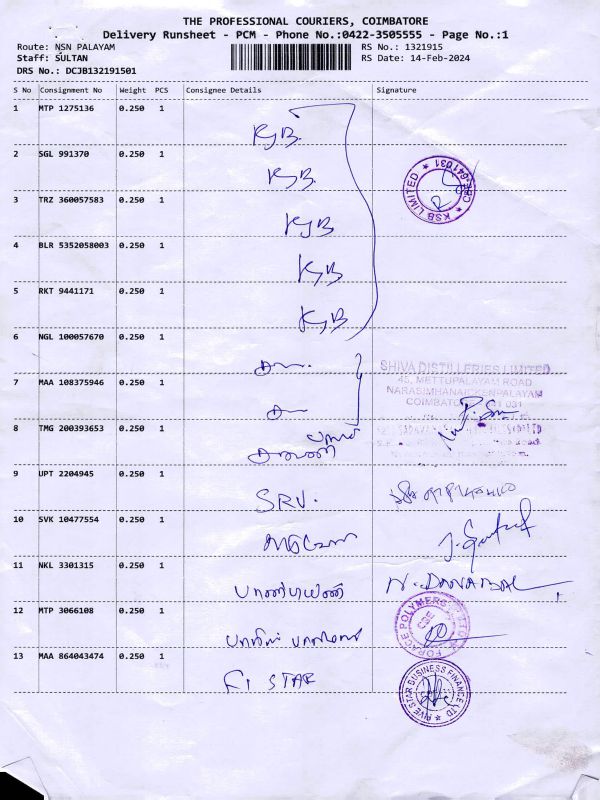 THE PROFESSIONAL COURIERS, COIMBATORE
Delivery Runsheet - PCM - Phone No.:0422-3505555 - Page No.:1
Route: NSN PALAYAM
RS No.: 1321915
Staff: SULTAN
RS Date: 14-Feb-2024
DRS No.: DCJB132191501
S No Consignment No Weight PCS Consignee Details Signature
1 MTP 1275136 0.250 1 KSB
2 SGL 991370 0.250 1 KSB
KSB LIMITED
3 TRZ 360057583 0.250 1 KSB
4 BLR 5352058003 0.250 1 KSB
5 RKT 9441171 0.250 1 KSB
6 NGL 100057670 0.250 1
SHIVA DISTILLERIES LIMITED
7 MAA 108375946 0.250 1
45, METTUPALAYAM ROAD
NARASIMHANAICKENPALAYAM
8 TMG 200393653 0.250 1
9 UPT 2204945 0.250 1 SRV.
10 SVK 10477554 0.250 1
11 NKL 3301315 0.250 1 பாண்டியன் N. DANABAL
12 MTP 3066108 0.250 1
13 MAA 864043474 0.250 1 FI STAR
FIVE STAR BUSINESS FINANCE LTD